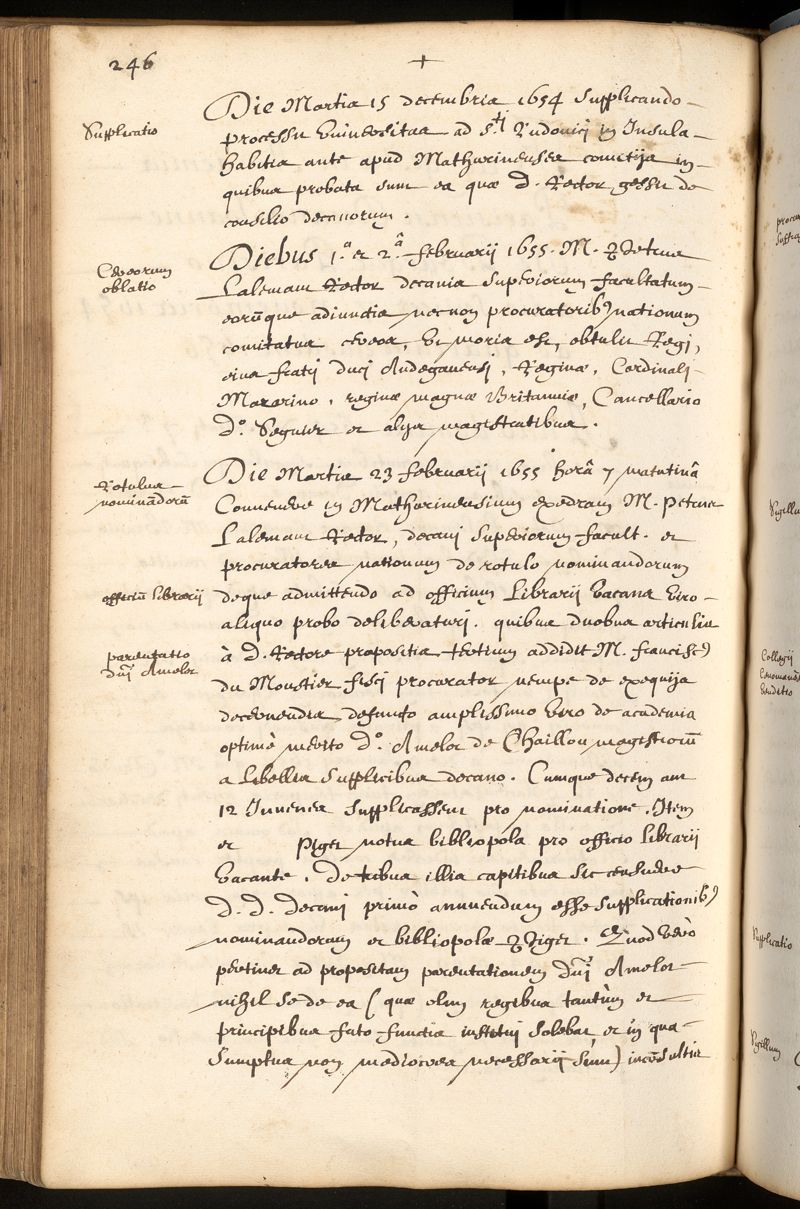 246
+
Supplicatio
Die Martis 15 decembris 1654 Supplicando
processu Universitas ad sti Ludovici in Insula
habitis ante apud Mathurinenses comitijs in
quibus probata sunt ea quæ d. Rector gessit de
consilio decanorum.
Cereorum
oblatio
Diebus 1.a et 2.a februarij 1655. M. Petrus
Lalemant Rector decanis superiorum facultatum
eorūque adiunctis necnon procuratorib9 nationum
comitatus cereos, ut moris est, obtulit Regi,
eius fratri duci Andegauensi, Reginæ, Cardinali
Mazarino, reginæ magnæ Britanniæ, Cancellario
do. Seguier et alijs magistratibus.
Rotulus
nominādorū
Die Martis 23 februarij 1655 horâ 7 matutinâ
Convenere in Mathurinensium exedram M. Petrus
Lalemant Rector, decani superiorum facult. et
procuratores nationum de rotulo nominandorum
officiū librarij
deque admittendo ad officium Librarij vacans viro
aliquo probo deliberaturi. quibus duobus articulis
parentatio
dni Amelot
à D. Rectore propositis tertium addidit M. francisc9
du Monstier fisci procurator nempe de exequijs
decernendis defuncto amplissimo viro de academia
optimè merito do. Amelot de Chaillou magistrorū
a libellis supplicibus decano. Cumque decem aut
12 Iuvenes supplicassent pro nominatione. Item
et Piget notus bibliopola pro officio librarij
vacante. De tribus illis capitibus sic censuere
D. D. Decani primò annuendum esse supplicationib9
nominandorum et bibliopolæ Piget. Quod verò
pertinet ad propositam parentationem dni Amelot
nihil se de ea (quæ olim regibus tantùm et
principibus fato functis institui solebat et in qua
sumptus non mediocres necessarij sunt) incōsultis